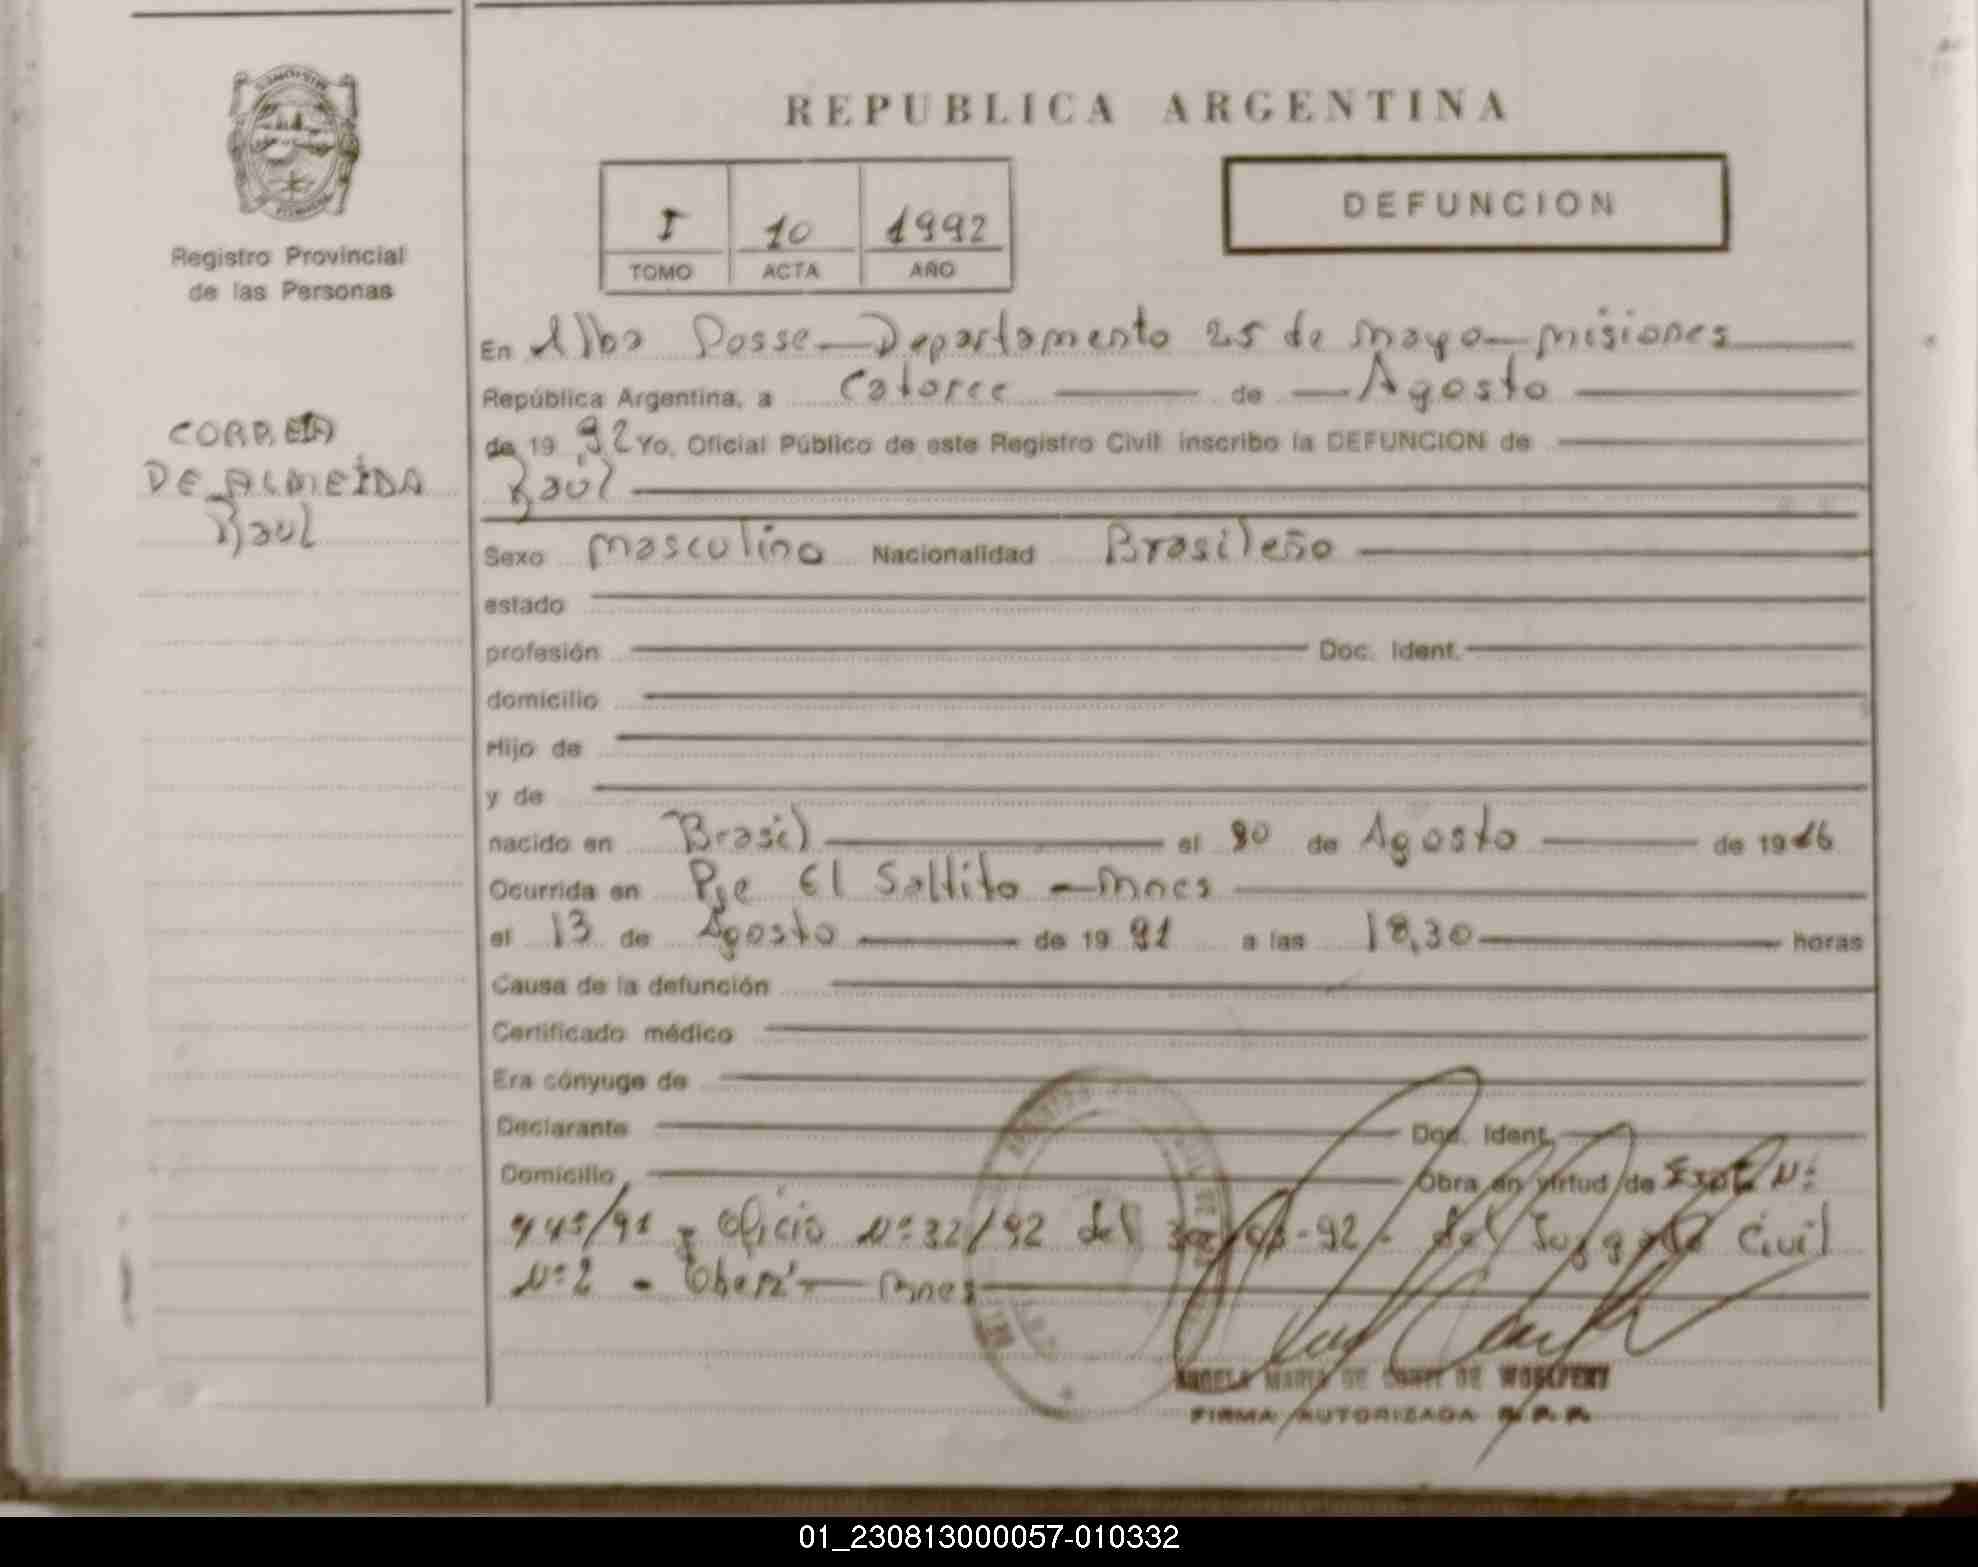 REPUBLICA ARGENTINA
DEFUNCION
I 10 1992
TOMO ACTA AÑO
Registro Provincial
de las Personas
CORREIA
DE ALMEIDA
Raul
En Alba Posse - Departamento 25 de mayo - misiones
República Argentina, a Catorce de Agosto
de 19 92 Yo, Oficial Público de este Registro Civil inscribo la DEFUNCION de
Raúl
Sexo masculino Nacionalidad Brasileño
estado
profesión Doc. Ident.
domicilio
Hijo de
y de
nacido en Brasil el de Agosto de 19 16
Ocurrida en Pje El Saltito - Mnes
el 13 de Agosto de 19 91 a las 18,30 horas
Causa de la defunción
Certificado médico
Era cónyuge de
Declarante Doc. Ident.
Domicilio Obra en virtud de Expte Nº
Oficio Nº 32/92 del del Juzgado Civil
Nº 2 - Oberá - Mnes
ANGELA MARIA DE CONTI DE
FIRMA AUTORIZADA R. P. P.
01_230813000057-010332